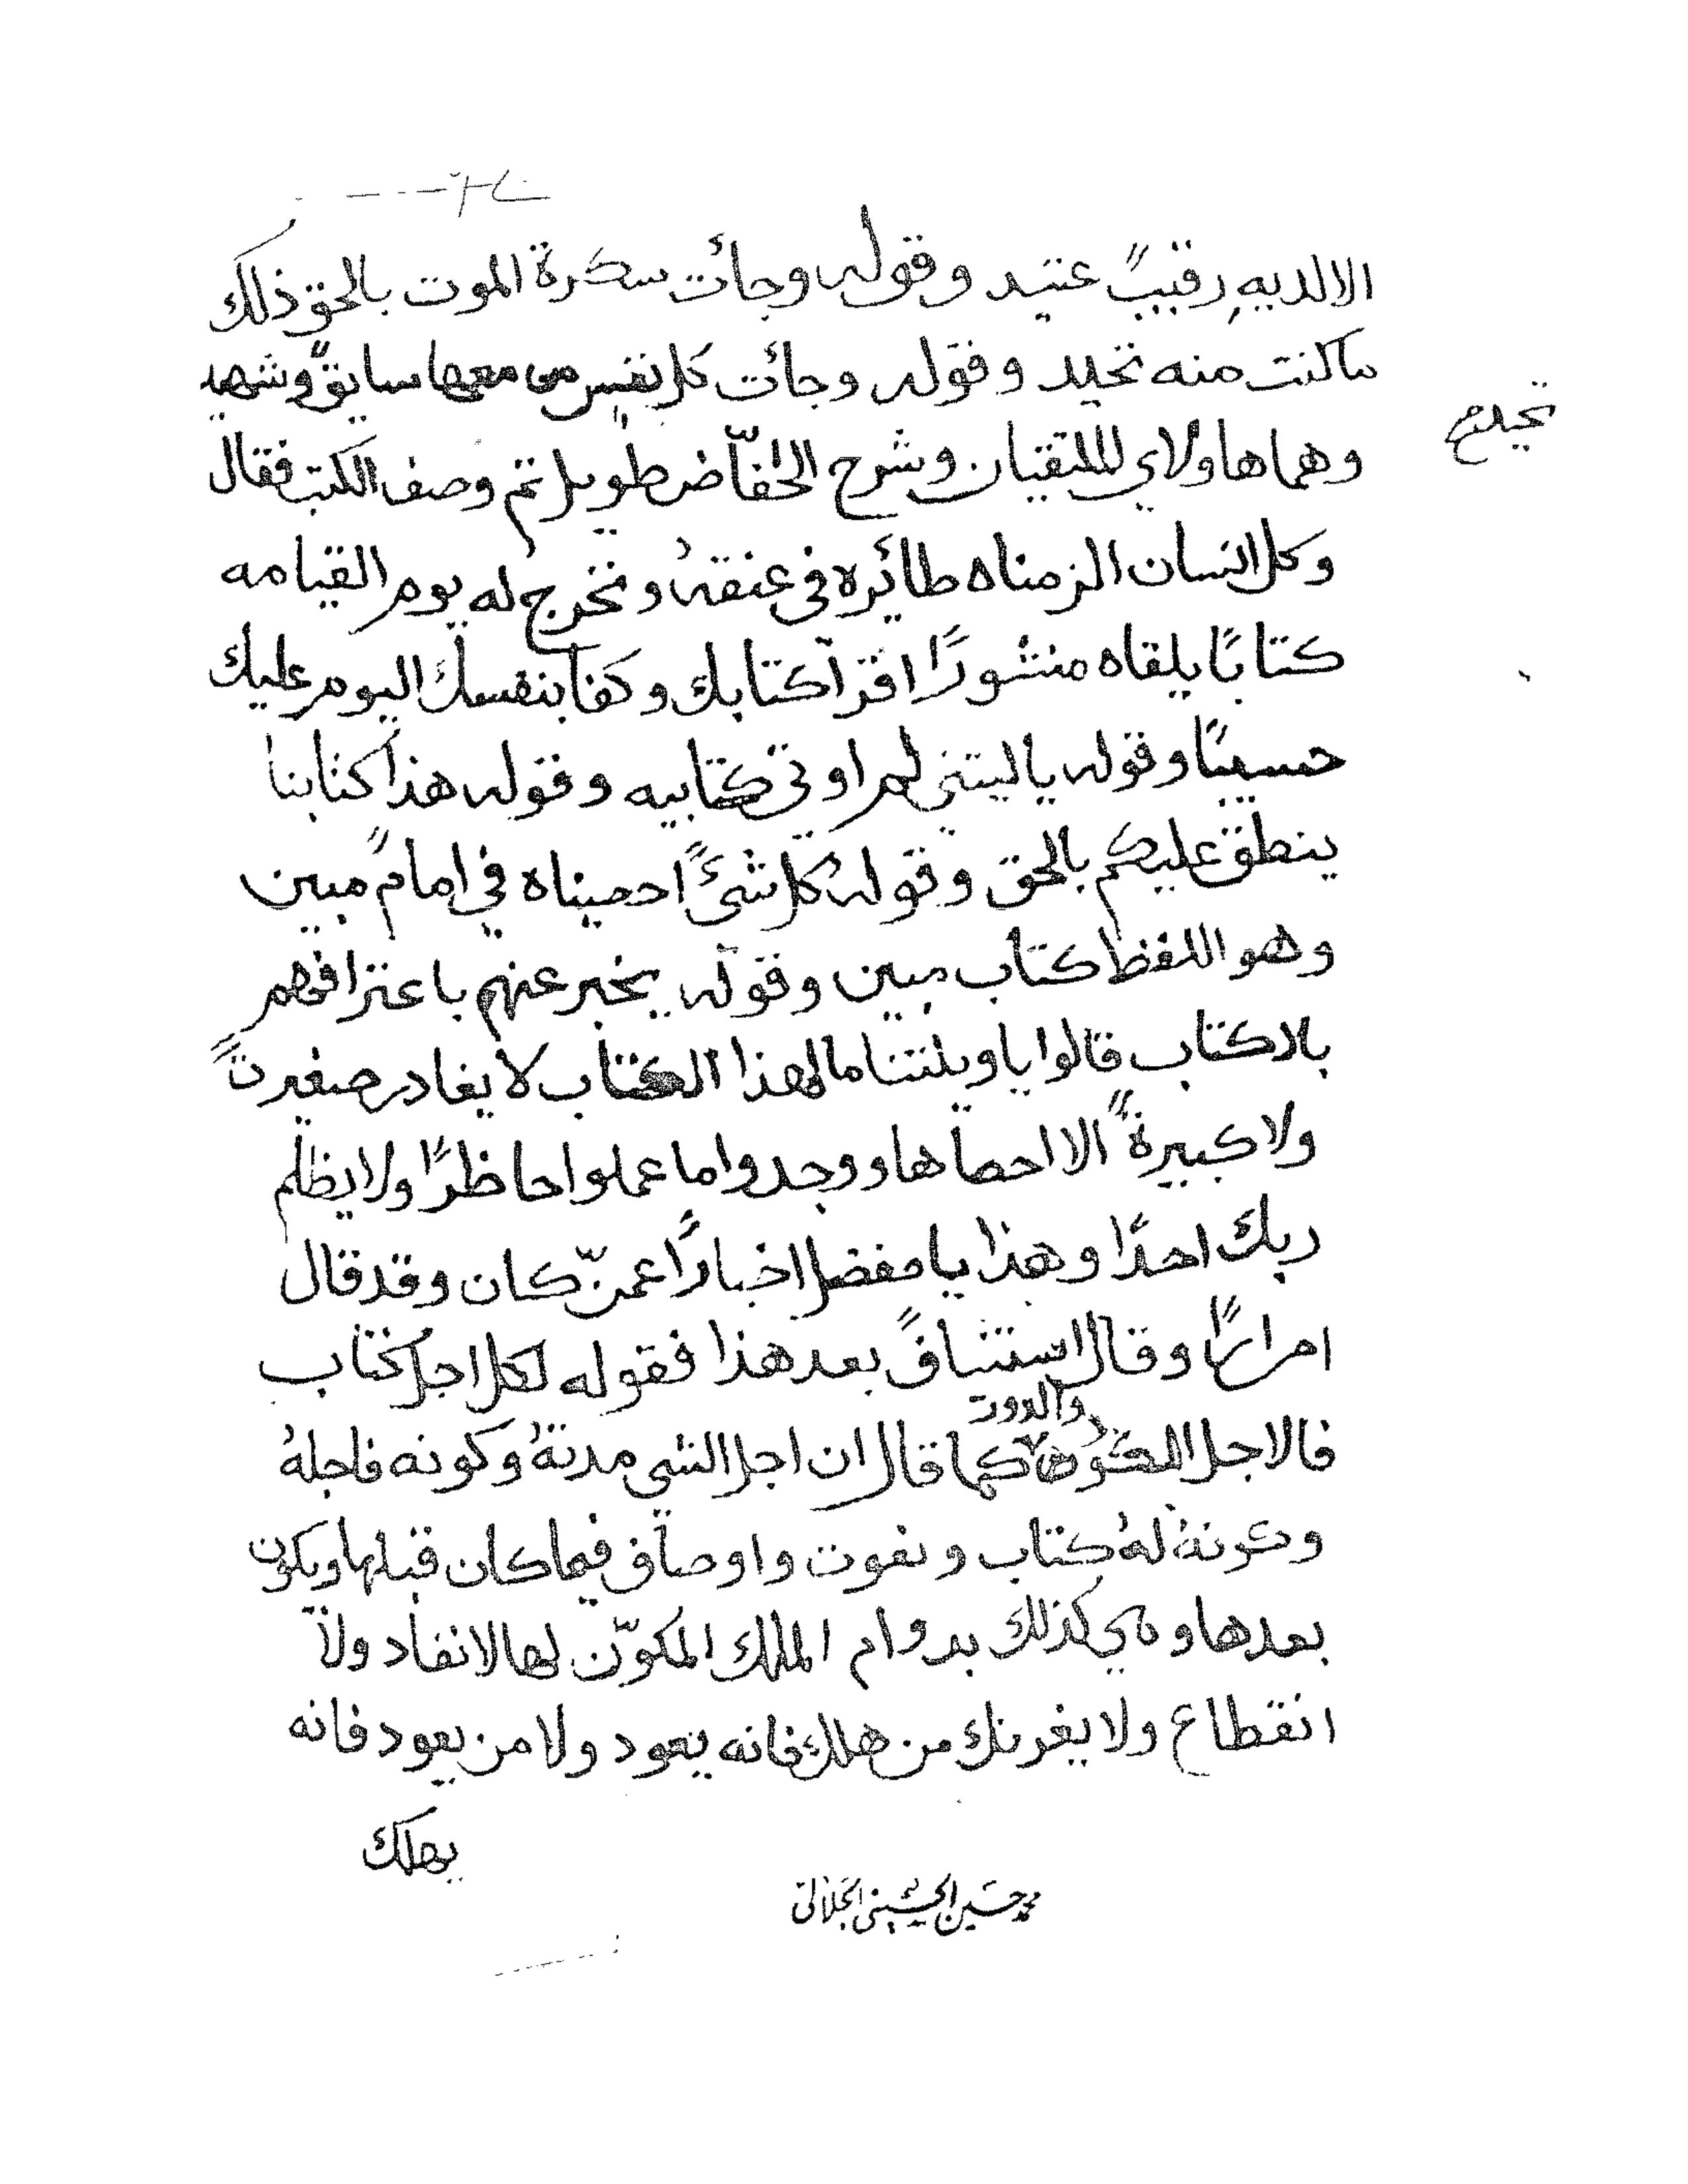 الا لديه رقيبً عتيد وقوله وجأت سكرة الموت بالحق ذلك
ما كنت منه تحيد وقوله وجأت كل نفس معها سايقً وشهيد
وهما هاولاي المتلقيان وشرح الحفّاض طويل ثم وصف الكتب فقال
وكل انسان الزمناه طائره في عنقه ونخرج له يوم القيامه
كتابًا يلقاه منشورًا اقرأ كتابك وكفا بنفسك اليوم عليك
حسيبًا وقوله يا ليتني لم اوتى كتابيه وقوله هذا كتابنا
ينطق عليكم بالحق وقوله كل شئً احصيناه في امامً مبين
وهو اللفظ كتاب مبين وقوله يخبر عنهم باعترافهم
بالاكتاب قالوا يا ويلتنا ما لهذا الكتاب لا يغادر صغيرتً
ولا كبيرةً الا احصاها ووجدوا ما عملوا حاظرًا ولا يظلم
ربك احدًا وهذا يا مفضل اخبارًا عمنّ كان وقد قال
امرارًا وقال استئنافً بعد هذا فقوله لكل اجل كتاب
فالاجل الكون كما قال ان اجل الشي مدتهُ وكونه فاجلهُ
وكونهُ لهُ كتاب ونعوت واوصاف فيما كان قبلها ويكون
بعدها وهي كذلك بدوام الملك المكوّن لها لا نفاد ولا
انقطاع ولا يغرنك من هلك فانه يعود ولا من يعود فانه
يهلك
محمد حسين الحسيني الجلالي